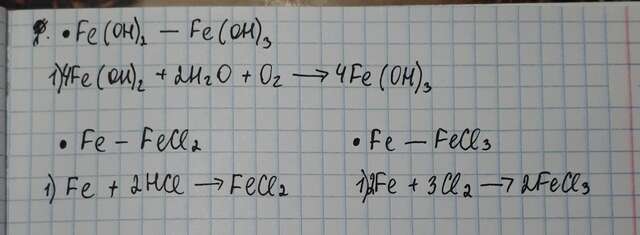 • Fe(OH)₂ — Fe(OH)₃
1) 4Fe(OH)₂ + 2H₂O + O₂ → 4Fe(OH)₃
• Fe — FeCl₂
1) Fe + 2HCl → FeCl₂
• Fe — FeCl₃
1) 2Fe + 3Cl₂ → 2FeCl₃